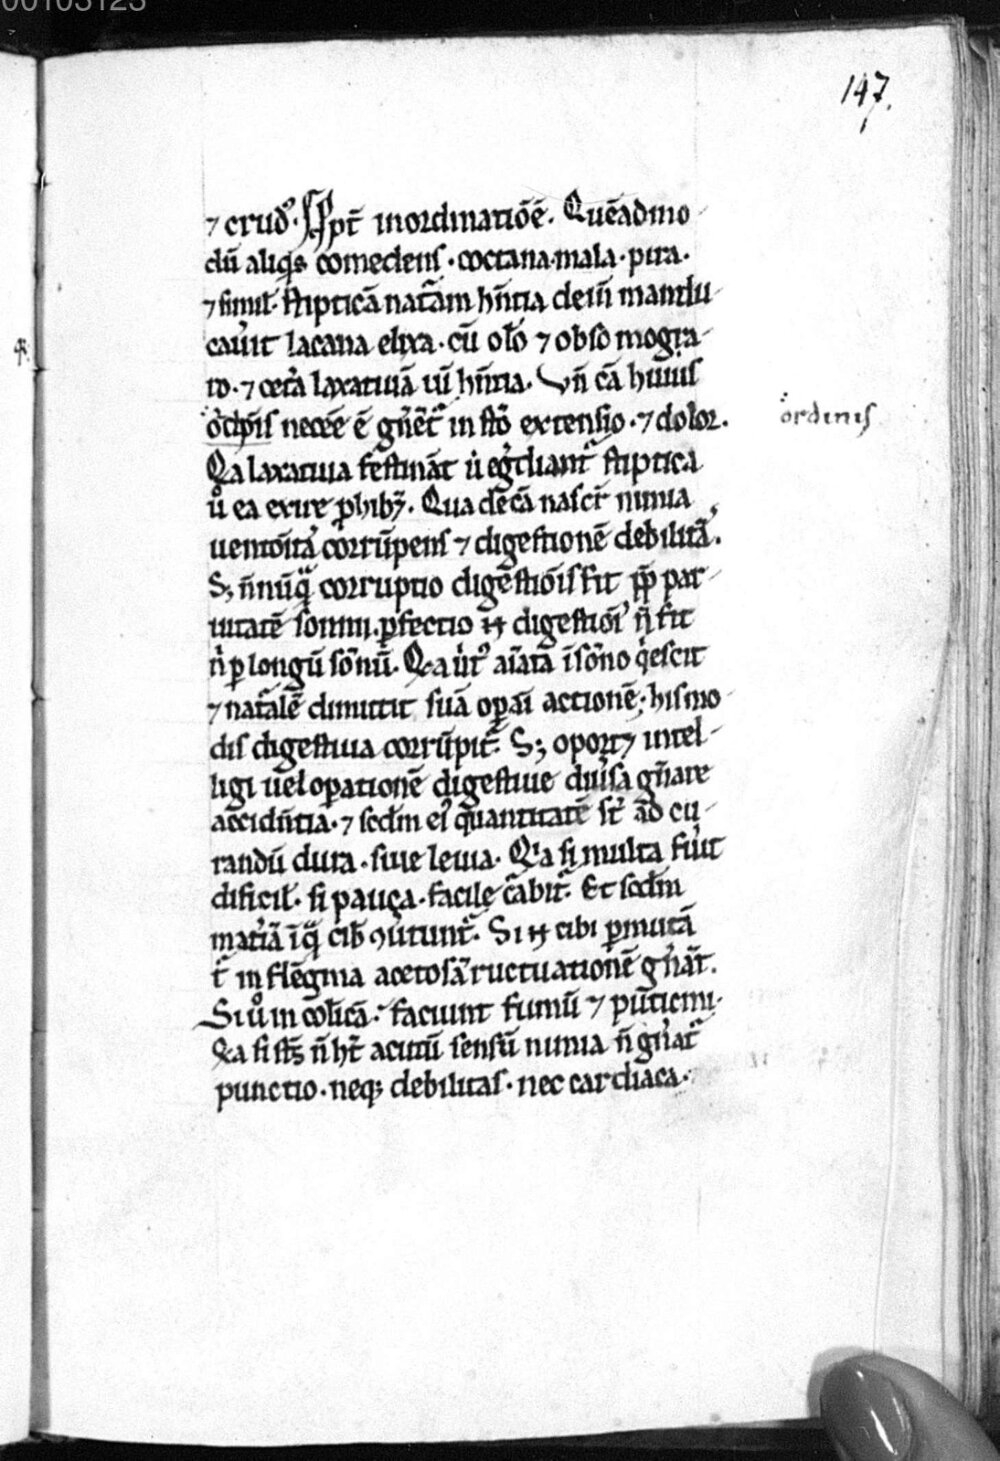 00103123
147.
⁊ crud᷒. Ppt̄ inordinatiōē. Quēadmo
dū aliq̇s comedens · coctana · mala · pira ·
⁊ simil̄. stipticā nat̄am hn̄tia dein̄ mandu
cau̓it lacana elixa · cū ol̓o ⁊ obso mogra
ro · ⁊ cet̓a laxatiuā uī hn̄tia. Vn̄ cā huius
necēe ē gn̓et᷑ in sto̓ extensio · ⁊ dolor.
ordinis
Q̇a laxatiua festināt ut̓ eg̓diant᷑ stiptica
u̓o ea exire ꝓhibꝫ. Qua de cā nascit᷑ nimia
uentōitas corrūpens ⁊ digestionē debilitās.
Sꝫ n̄nūq̄ corruptio digestiōis fit ꝓp̄ par
uitatē somni. ꝑfectio n̄ digestiōis n̄ fit
n̓ ꝑ longū sōnū. Q̇a
⁊ nat̄alē dimittit suā oꝑa᷑i actionē; his mo
dis digestiua corrūpit᷑. Sꝫ oportꝫ intel
ligi uel oꝑationē digestiue diu̓sa gn̓are
accidn̄tia · ⁊ scd̄m ei᷒ quantitatē st̄ ad cu
randū dura · siue leuia. Q̇a si multa fiu̓t
dificil̄ · si pauca · facile cābit᷑. Et scd̄m
mat̓iā ī q̄ cib᷒ ꝯu̓tunt᷑. Si n̄ cibi ꝑmutā
t᷑ in flegma acetosā ructuationē gn̓āt.
Si u̓o in col̓icā · faciunt fumū ⁊ pūctiōi ·
Q̇a si n̄ ht̄ acutū sensū nimia n̄ gn̓at᷑
punctio · neqꝫ debilitas · nec cardiaca ·